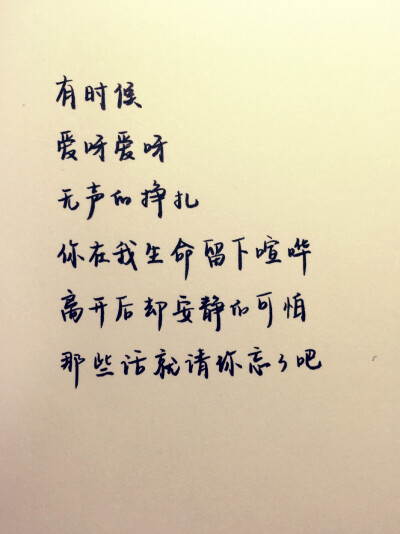 有时候
爱呀爱呀
无声的挣扎
你在我生命留下喧哗
离开后却安静的可怕
那些话就请你忘了吧